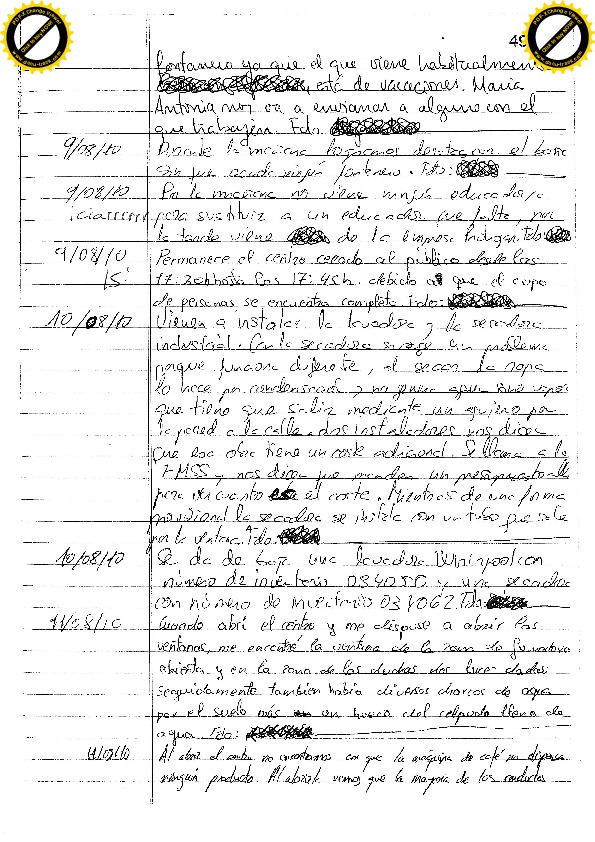 49
fontanero ya que el que viene habitualmente
está de vacaciones. Maria
Antonia nos va a enviar a alguno con el
que trabajan. Fdo.
9/08/10 Durante la mañana con el
que acuda ningún fontanero. Fdo:
9/08/10 Por la mañana no viene ningún educador/a
para sustituir a un educador que falta, por
la tarde viene de la empresa Fdo:
9/08/10 Permanece el centro cerrado al público desde las
17:20h hasta las 17:45h. debido a que el cupo
de personas se encuentra completo. Fdo:
10/08/10 Vienen a instalar la lavadora y la secadora
industrial. Con la secadora surge un problema
porque funciona diferente, al secar la ropa
lo hace por condensación y no genera agua sino vapor
que tiene que salir mediante un agujero por
la pared a la calle. Los instaladores nos dicen
que esa obra tiene un coste adicional. Se llama a la
FMSS y nos dicen que manden un presupuesto allí
para ver cuanto el corte. Mientras de una forma
provisional la secadora se instala con un tubo que sale
por la ventana. Fdo:
10/08/10 Se da de baja una lavadora Whirpool con
número de inventario 034050 y una secadora
con número de inventario 037062. Fdo:
11/08/10 Cuando abrí el centro y me dispuse a abrir las
ventanas, me encontré la ventana de la zona de
abierta y en la zona de las duchas dos luces dadas
seguidamente tambien había diversos charcos de agua
por el suelo más un hueco del lleno de
agua. Fdo:
11/08/10 Al abrir el centro nos encontramos con que la máquina de café no dispensa
ningún producto. Al abrirla vemos que la mayoría de los conductos